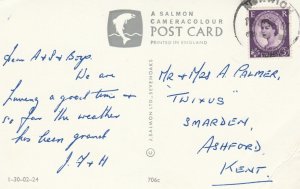 A SALMON
CAMERACOLOUR
POST CARD
PRINTED IN ENGLAND
Dear A & S & Boys.
We are
having a good time &
so far the weather
has been grand
J, F & H
1-30-02-24
706c
J. SALMON LTD., SEVENOAKS
Mr & Mrs A PALMER,
"TWIXUS"
SMARDEN,
ASHFORD,
KENT.